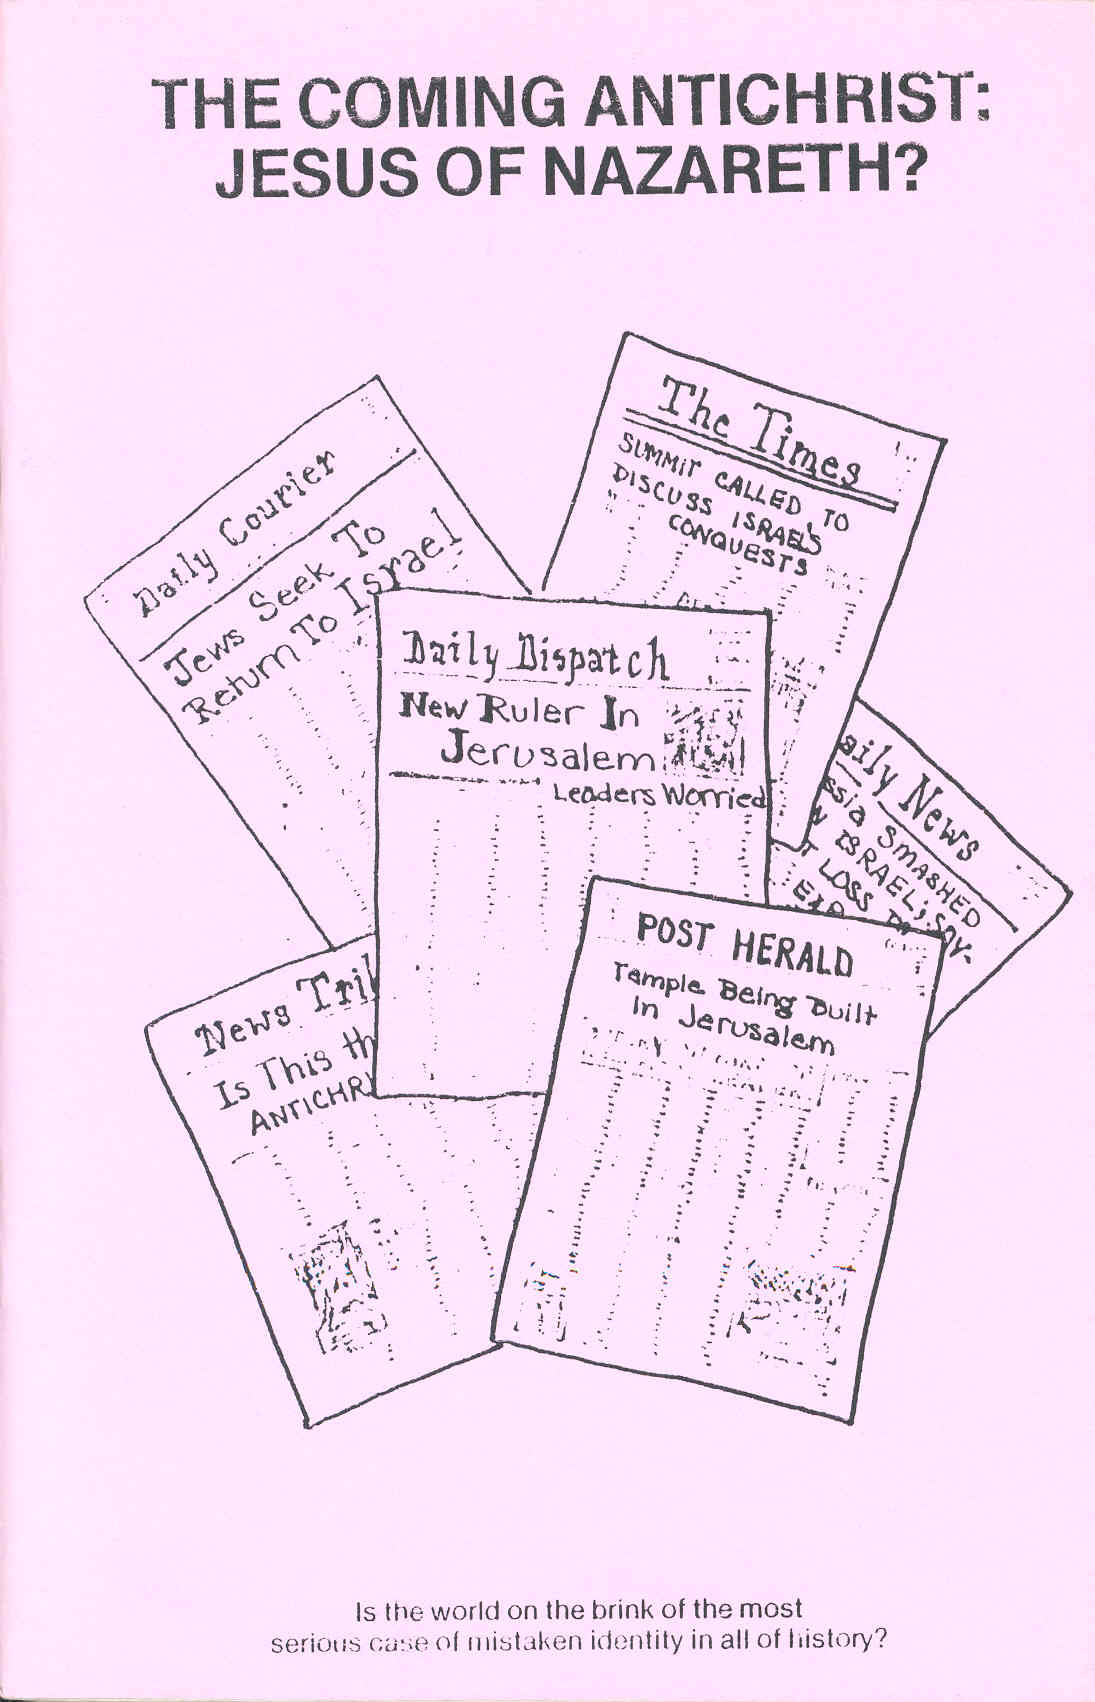 THE COMING ANTICHRIST:
JESUS OF NAZARETH?
The Times
SUMMIT CALLED TO
DISCUSS ISRAEL'S
CONQUESTS
Daily Courier
Jews Seek To
Return To Israel
Daily Dispatch
New Ruler In
Jerusalem
Leaders Worried
aily News
ssia SMASHED
ISRAEL; SOV-
LOSS
POST HERALD
Temple Being Built
In Jerusalem
News Trib
Is This th
ANTICHR
Is the world on the brink of the most
serious case of mistaken identity in all of history?